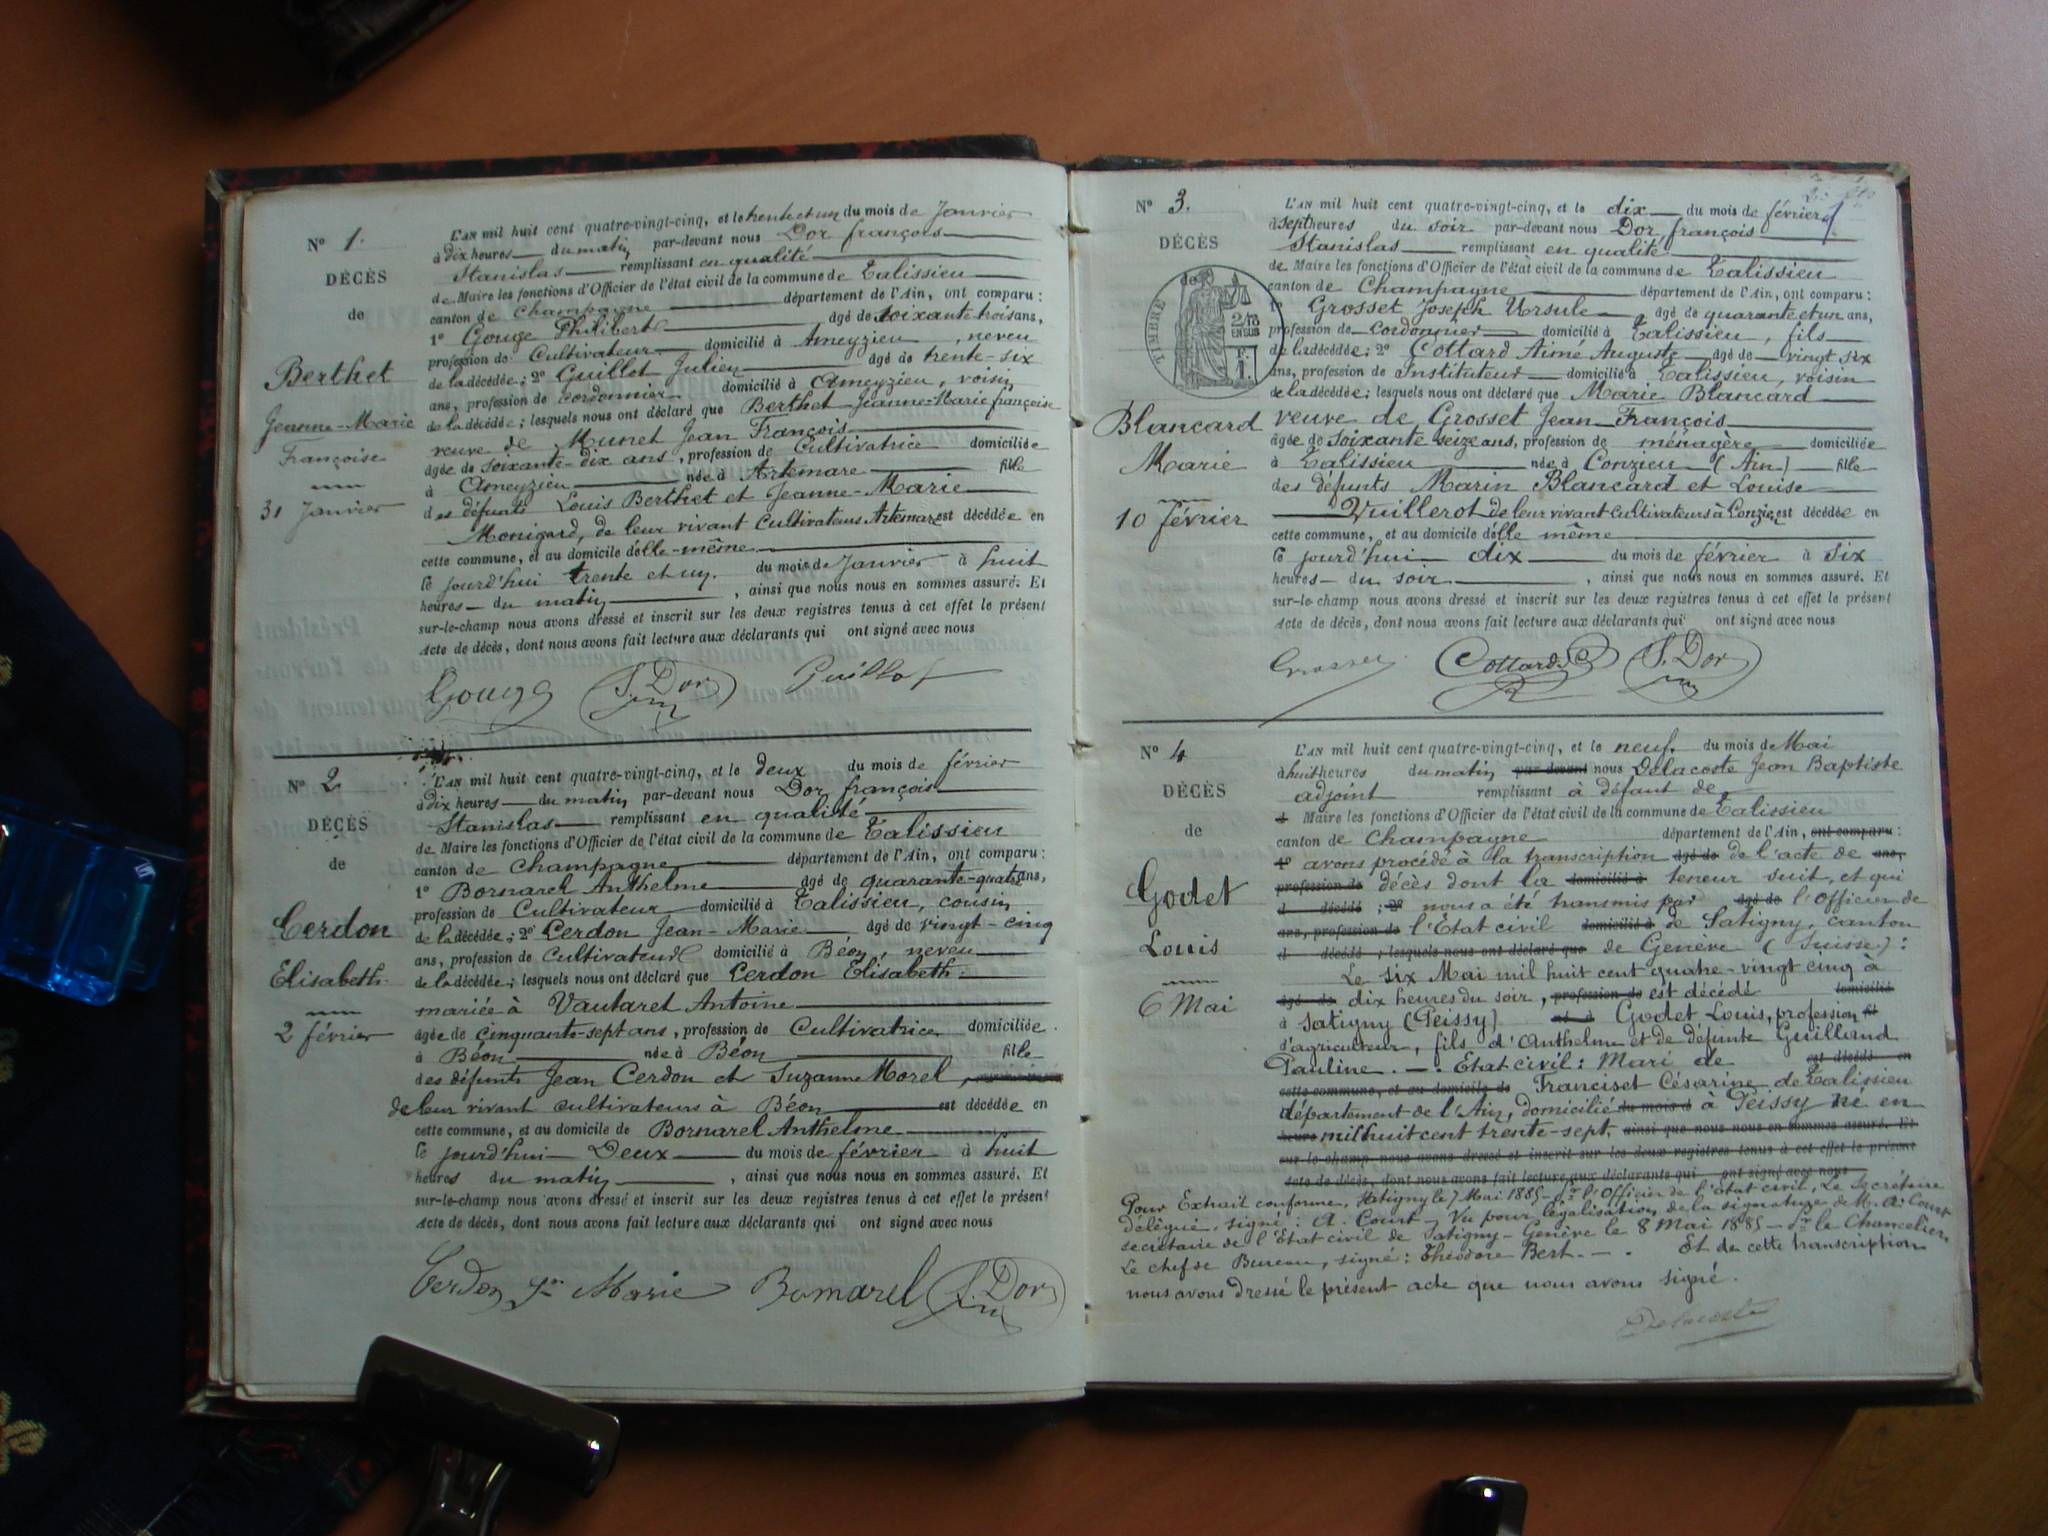 N° 1.
DÉCÈS
de
Berthet
Jeanne-Marie
Françoise
31 Janvier
L'AN mil huit cent quatre-vingt-cinq, et le trente et un du mois de Janvier
à dix heures du matin par-devant nous Dor françois
Stanislas remplissant en qualité
de Maire les fonctions d'Officier de l'état civil de la commune de Talissieu
canton de Champagne département de l'Ain, ont comparu :
1° Gouge Philibert âgé de soixante trois ans,
profession de Cultivateur domicilié à Ameyzieu, neveu
de la décédée ; 2° Guillot Julien âgé de trente-six
ans, profession de Cordonnier domicilié à Ameyzieu, voisin
de la décédée ; lesquels nous ont déclaré que Berthet Jeanne-Marie françoise
veuve de Munet Jean François
âgée de soixante-dix ans, profession de Cultivatrice domiciliée
à Ameyzieu née à Artemare fille
des défunts Louis Berthet et Jeanne-Marie
Monigard, de leur vivant Cultivateurs Artemare est décédée en
cette commune, et au domicile d'elle-même
le jourd'hui trente et un du mois de Janvier à huit
heures du matin, ainsi que nous nous en sommes assuré. Et
sur-le-champ nous avons dressé et inscrit sur les deux registres tenus à cet effet le présent
acte de décès, dont nous avons fait lecture aux déclarants qui ont signé avec nous
Gouge S. Dor Guillot
N° 2
DÉCÈS
de
Cerdon
Elisabeth.
2 février
L'AN mil huit cent quatre-vingt-cinq, et le deux du mois de février
à dix heures du matin par-devant nous Dor françois
Stanislas remplissant en qualité
de Maire les fonctions d'Officier de l'état civil de la commune de Talissieu
canton de Champagne département de l'Ain, ont comparu :
1° Bornarel Anthelme âgé de quarante-quatre ans,
profession de Cultivateur domicilié à Talissieu, cousin
de la décédée ; 2° Cerdon Jean-Marie âgé de vingt-cinq
ans, profession de Cultivateur domicilié à Béon, neveu
de la décédée ; lesquels nous ont déclaré que Cerdon Elisabeth
mariée à Vautaret Antoine
âgée de cinquante-sept ans, profession de Cultivatrice domiciliée
à Béon née à Béon fille
des défunts Jean Cerdon et Suzanne Morel,
de leur vivant cultivateurs à Béon est décédée en
cette commune, et au domicile de Bornarel Anthelme
le jourd'hui Deux du mois de février à huit
heures du matin, ainsi que nous nous en sommes assuré. Et
sur-le-champ nous avons dressé et inscrit sur les deux registres tenus à cet effet le présent
acte de décès, dont nous avons fait lecture aux déclarants qui ont signé avec nous
Cerdon Jn Marie Bornarel S. Dor
N° 3.
DÉCÈS
de
TIMBRE
2/10
EN SUS
Blancard
Marie
10 février
L'AN mil huit cent quatre-vingt-cinq, et le dix du mois de février
à sept heures du soir par-devant nous Dor françois
Stanislas remplissant en qualité
de Maire les fonctions d'Officier de l'état civil de la commune de Talissieu
canton de Champagne département de l'Ain, ont comparu :
1° Grosset Joseph Ursule âgé de quarante et un ans,
profession de Cordonnier domicilié à Talissieu, fils
de la décédée ; 2° Cottard Aimé Auguste âgé de vingt six
ans, profession de Instituteur domicilié à Talissieu, voisin
de la décédée ; lesquels nous ont déclaré que Marie Blancard
veuve de Grosset Jean François
âgée de soixante seize ans, profession de ménagère domiciliée
à Talissieu née à Conzieu (Ain) fille
des défunts Marin Blancard et Louise
Vuillerot de leur vivant cultivateurs à Conzieu est décédée en
cette commune, et au domicile d'elle même
le jourd'hui dix du mois de février à six
heures du soir, ainsi que nous nous en sommes assuré. Et
sur-le-champ nous avons dressé et inscrit sur les deux registres tenus à cet effet le présent
acte de décès, dont nous avons fait lecture aux déclarants qui ont signé avec nous
Grosset Cottard S. Dor
N° 4
DÉCÈS
de
Godet
Louis
6 Mai
L'AN mil huit cent quatre-vingt-cinq, et le neuf du mois de Mai
à huit heures du matin par-devant nous Delacoste Jean Baptiste
adjoint remplissant à défaut de
Maire les fonctions d'Officier de l'état civil de la commune de Talissieu
canton de Champagne département de l'Ain, ont comparu :
1° avons procédé à la transcription âgé de de l'acte de ans,
profession de décès dont la domicilié à teneur suit, et qui
d décédé ; 2° nous a été transmis par âgé de l'Officier de
ans, profession de l'Etat civil domicilié à de Satigny, canton
d décédé ; lesquels nous ont déclaré que de Genève (Suisse) :
Le six Mai mil huit cent quatre-vingt cinq à
âgé de dix heures du soir, profession de est décédé domicilié
à Satigny (Peissy) né à Godet Louis, profession fil
d'agriculteur, fils d'Anthelme et de défunte Guilland
Pauline. — Etat civil : Mari de est décédé en
cette commune, et au domicile de Franciset Césarine de Talissieu
département de l'Ain, domicilié du mois d à Peissy né en
heure mil huit cent trente-sept. ainsi que nous nous en sommes assuré. Et
sur-le-champ nous avons dressé et inscrit sur les deux registres tenus à cet effet le présent
acte de décès, dont nous avons fait lecture aux déclarants qui ont signé avec nous
Pour Extrait conforme, Satigny le 7 Mai 1885 - pr l'Officier de l'état civil, Le Secrétaire
délégué, signé : A. Court - Vu pour légalisation de la signature de M. A. Court
secrétaire de l'Etat civil de Satigny - Genève le 8 Mai 1885 - pr le Chancelier,
Le chef de Bureau, signé : Théodore Bert. — . Et de cette transcription
nous avons dressé le présent acte que nous avons signé.
Delacoste